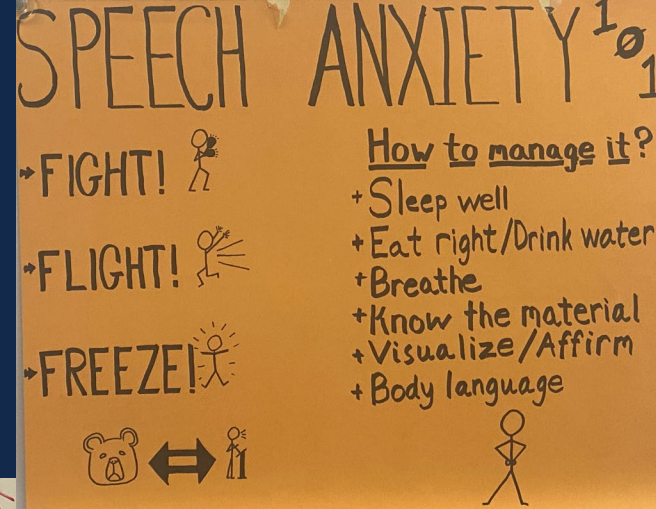 SPEECH ANXIETY 101
→FIGHT!
→FLIGHT!
→FREEZE!
How to manage it?
+Sleep well
+Eat right/Drink water
+Breathe
+Know the material
+Visualize/Affirm
+Body language